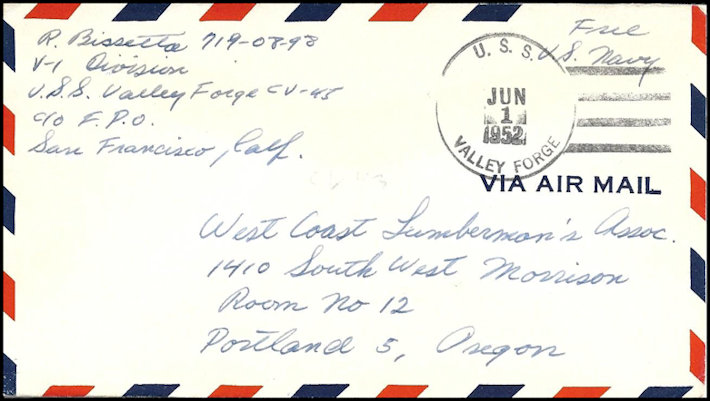 R. Bissetta 719-08-98
V-1 Division
U.S.S. Valley Forge CV-45
c/o F.P.O.
San Francisco, Calf.
Free
U.S. Navy
U. S. S.
JUN
1
1952
VALLEY FORGE
VIA AIR MAIL
West Coast Lumberman's Assoc.
1410 South West Morrison
Room No 12
Portland 5, Oregon